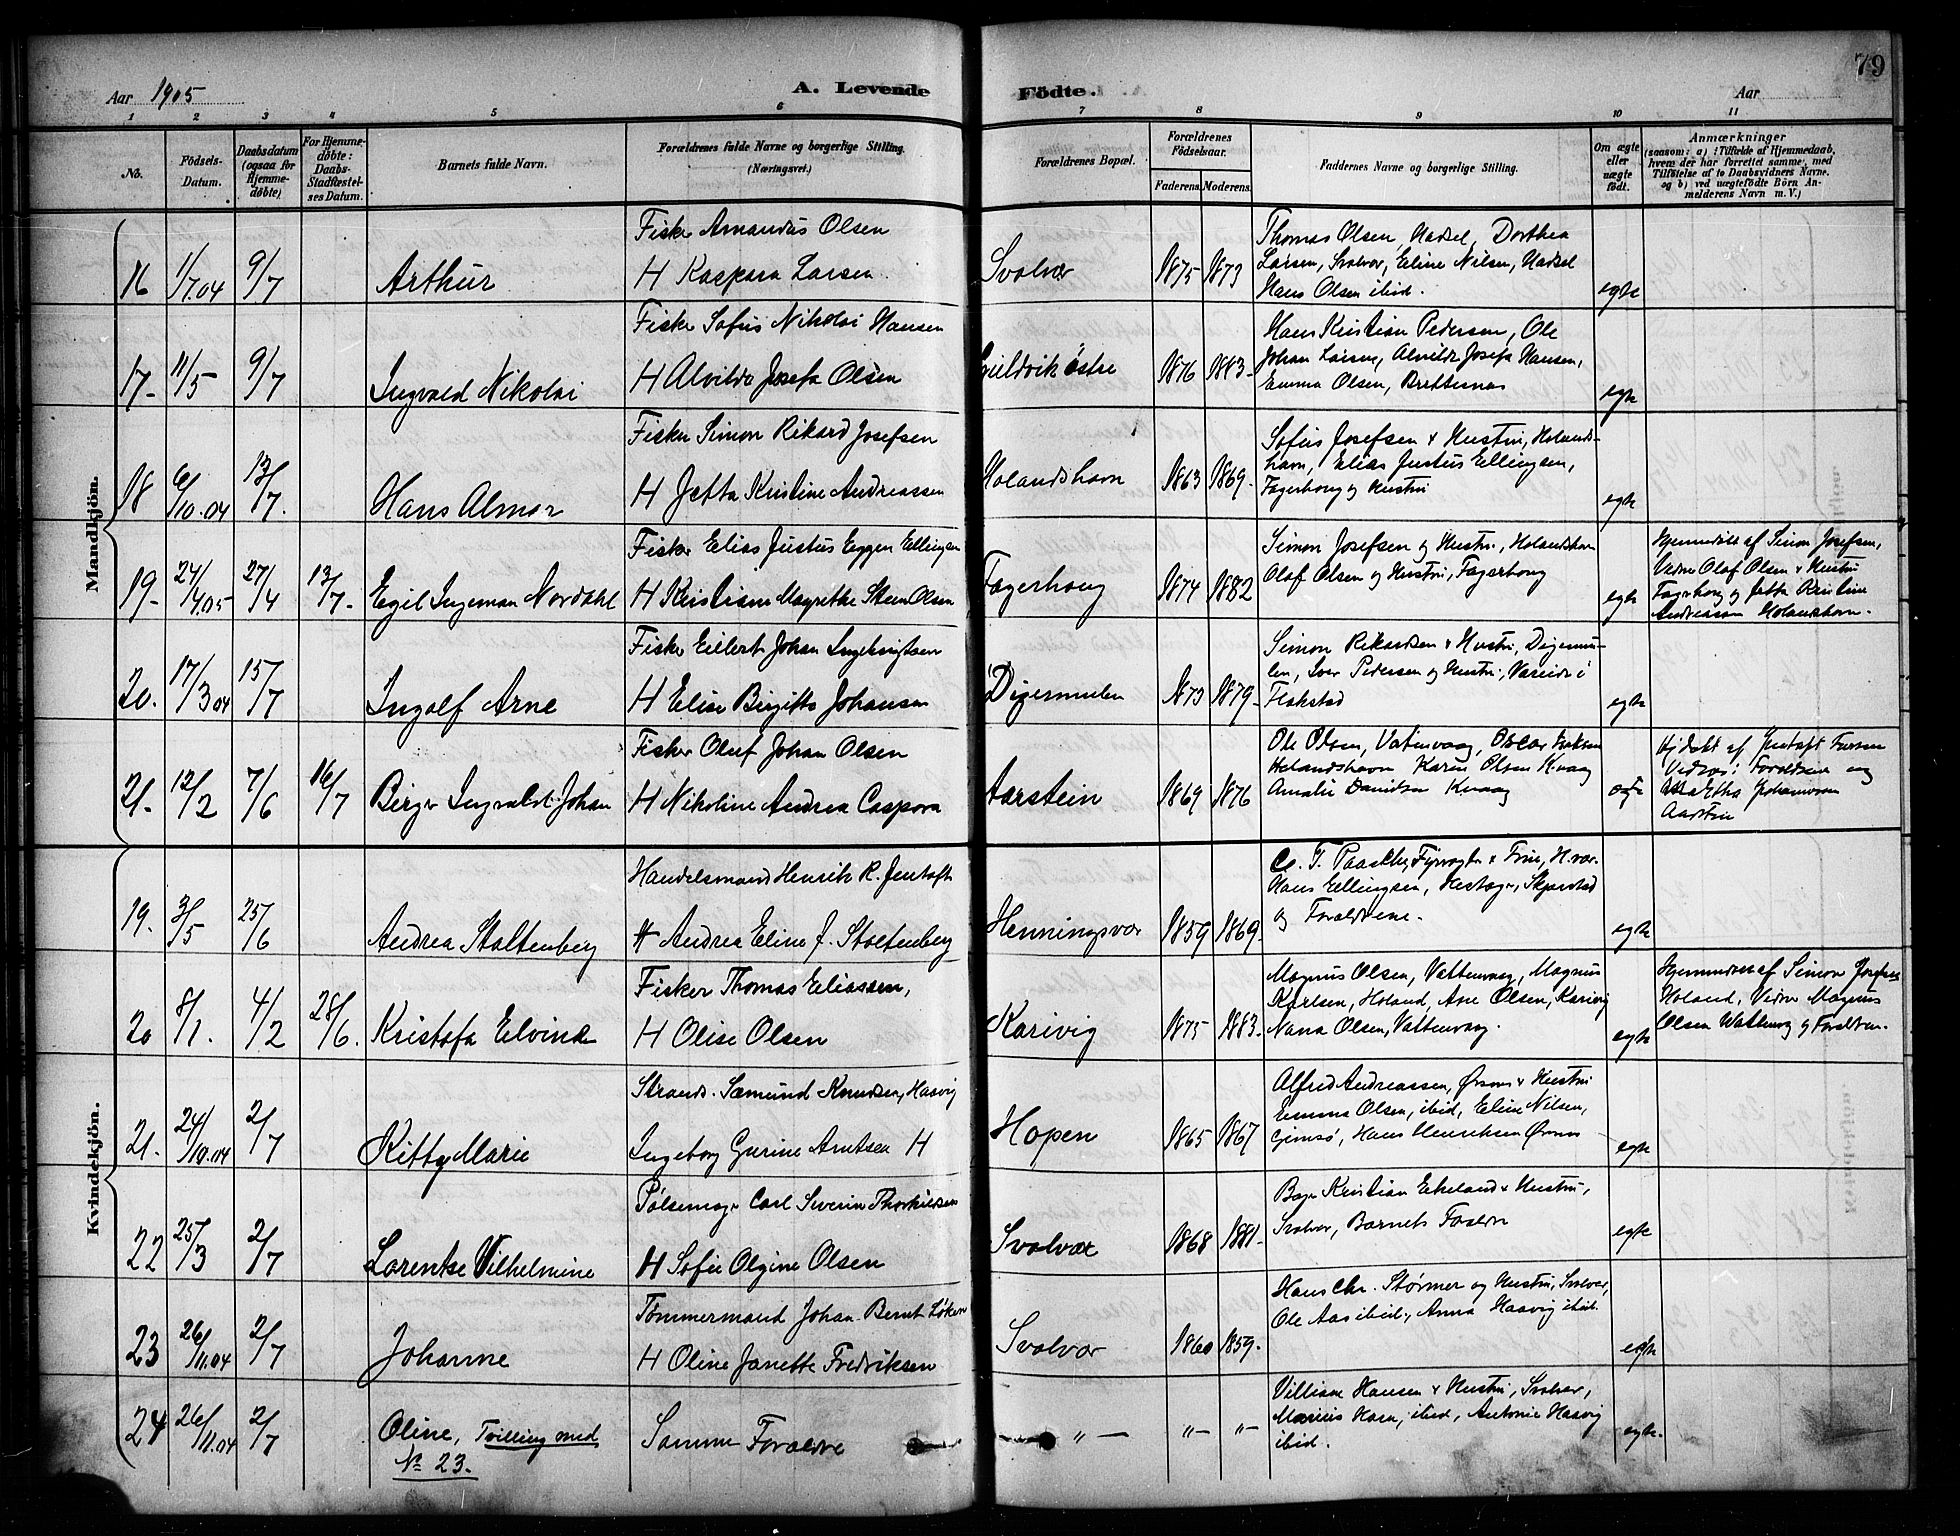 79
Aar 1905
A. Levende Födte.
Aar
1 2 3 4 5 6 7 8 9 10 11
No.
Födsels-Datum.
Daabsdatum (ogsaa for Hjemme-döbte)
For Hjemme-döbte: Daabs-Stadfæstel-ses Datum.
Barnets fulde Navn.
Forældrenes fulde Navne og borgerlige Stilling. (Næringsvei.)
Forældrenes Bopæl.
Forældrenes Födselsaar.
Faderens. Moderens.
Faddernes Navne og borgerlige Stilling.
Om ægte eller uægte födt.
Anmærkninger
(saasom: a) i Tilfælde af Hjemmedaab,
hvem der har forrettet samme, med
Tilföielse af to Daabsvidners Navne.
og b) ved uægtefödte Börn An-
melderens Navn m. V.)
Mandkjön.
Fisker Amandus Olsen
16 1/7.04 9/7 Arthur H Kaspara Larsen Svolvær 1875 1873
Thomas Olsen, Hadsel, Dorthea
Larsen, Svolvær, Eline Nilsen, Hadsel
Hans Olsen ibid. egte
Fisker Sofus Nikolai Hansen
17- 11/5 9/7 Ingvald Nikolai H Alvilde Josefa Olsen østre 1876 1883-
Hans Kristian Pedersen, Ole
Johan Larsen, Alvilde Josefa Hansen,
Emma Olsen, Brettesnæs egte
Fisker Simon Rikard Josefsen
18 6/10.04 13/7. Hans Almar H Jetta Kristine Andreassen Holandshavn 1863 1869-
Sofus Josefsen & Hustru, Holands-
havn, Elias Justus Ellingsen,
Fagerhaug og Hustru egte
Fisker Elias Justus Eggen Ellingsen
19- 24/4.05 27/4 13/7- Egil Ingeman Nordahl H Kristiane Magrethe Steen Olsen Fagerhaug 1874 1882
Simon Josefsen og Hustru, Holandshavn
Olaf Olsen og Hustru, Fagerhaug egte
Hjemmedøbt af Simon Josefsen,
Vidner Olaf Olsen & Hustru
Fagerhaug og Jetta Kristine
Andreassen Holandshavn.
Fisker Eilert Johan Ingebrigtsen
20. 17/3 04 15/7 Ingolf Arne H Elise Birgitte Johansen Digermulen 1873 1879-
Simon Rikardsen & Hustru, Digermu-
len, Iver Pedersen og Hustru, i
Flakstad egte
Fisker Oluf Johan Olsen
21. 12/2 7/6 16/7 Birger Ingvald Johan H Nikoline Andrea Caspara Aarstein 1869 1876
Ole Olsen, Vatenvaag, Oscar
Holandshavn Karen Olsen Kvaag
Amalie Davidsen Kvaag
Hj.døbt af Jentoft
Forældrene og
Johannesen
Aarstein
Kvindekjön.
Handelsmand Henrik R. Jentoft
19. 3/5 25/6 Andrea Stoltenberg H Andrea Eline f. Stoltenberg Henningsvær 1859 1869-
Paasche, Fyrvogter & Frue, H.vær.
Hans Ellingsen, Skjerstad
og Forældrene. egte
Fisker Thomas Eliassen,
20 8/1. 4/2 28/6. Kristofa Elvinde H Olise Olsen Karivig 1875 1883-
Magnus Olsen, Vattenvaag, Magnus
Karlsen, Holand, Olsen, Karivig
Nanna Olsen, Vattenvaag. egte
Hjemmedøbt af Simon Josefsen
Holand, Vidner Magnus
Olsen Vattenvaag og Forældrene.
Strands. Sæmund Knudsen, Haavig
21. 24/10.04 2/7 Kitty Marie Ingeborg Gurine Arntsen H Hopen 1865 1867
Alfred Andreassen, Ørsnes & Hustru
Emma Olsen, ibid, Eline Nilsen,
Gimsø, Hans Henriksen Ørsnes egte
Pølsemager Carl Severin Thorkildsen
22 25/3 2/7 Lorentse Vilhelmine H Sofie Olgine Olsen Svolvær 1868 1881-
Bager Kristian Ekeland & Hustru,
Svolvær, Barnets Forældre egte
Tømmermand Johan Bernt Løken
23 26/11.04 2/7 Johanne H Oline Janette Fredriksen Svolvær 1860 1859.
Hans Chr. Størmer og Hustru, Svolvær,
Ole Aas ibid., Anna Haavig ibid. egte
24 26/11.04 2/7 Oline, Tvilling med
No 23.
Samme Forældre „ — „— „—
Villiam Hansen & Hustru, Svolvær,
Marius Horn, ibid, Antonie Haavig
ibid. egte.